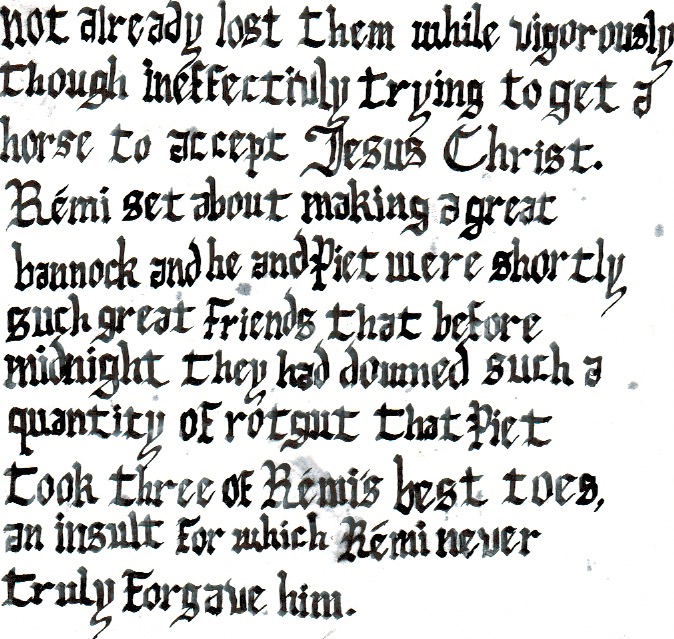 not already lost them while vigorously
though ineffectivly trying to get a
horse to accept Jesus Christ.
Rémi set about making a great
bannock and he and Piet were shortly
such great friends that before
midnight they had downed such a
quantity of rotgut that Piet
took three of Rémi's best toes,
an insult for which Rémi never
truly forgave him.